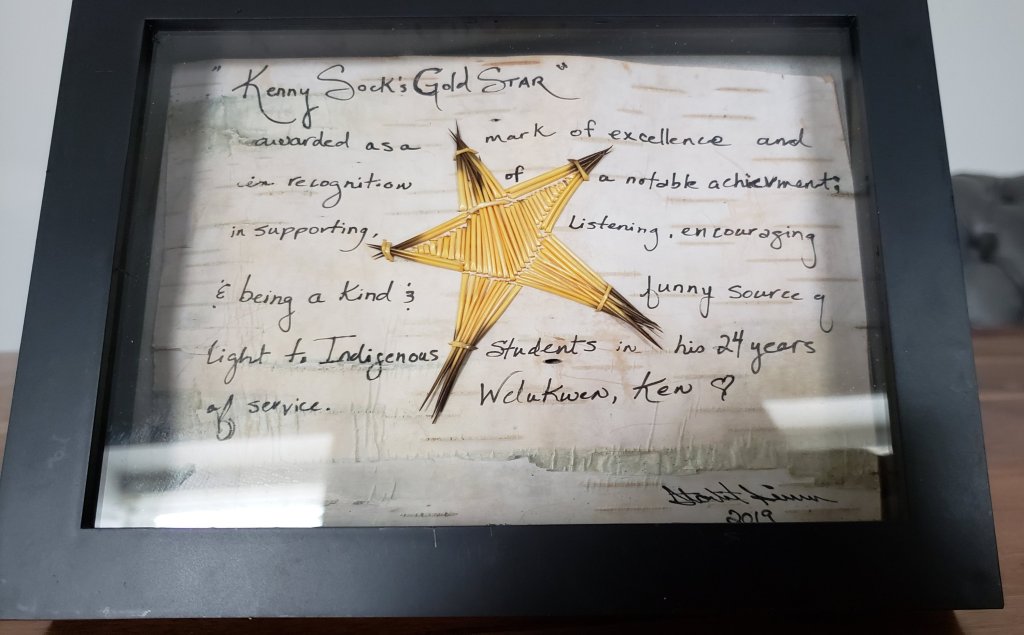 "Kenny Sock's Gold STAR"
awarded as a mark of excellence and
in recognition of a notable achievment;
in supporting, Listening, encouraging
& being a kind & funny source of
light to Indigenous students in his 24 years
of service. Welukwen, Ken ♡
2019